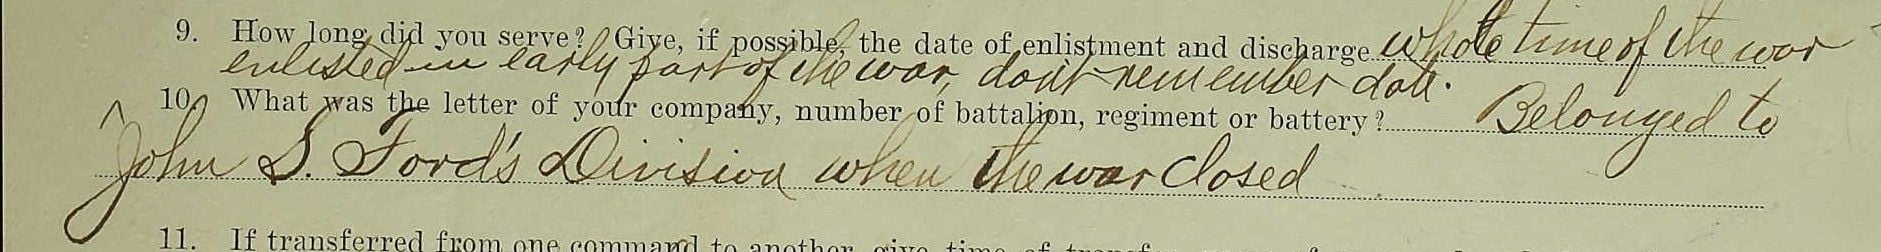 9. How long did you serve? Give, if possible, the date of enlistment and discharge whole time of the war
enlisted in early part of the war, don't remember date.
10. What was the letter of your company, number of battalion, regiment or battery? Belonged to
John S. Ford's Division when the war closed
11. If transferred from one command to another, give time of